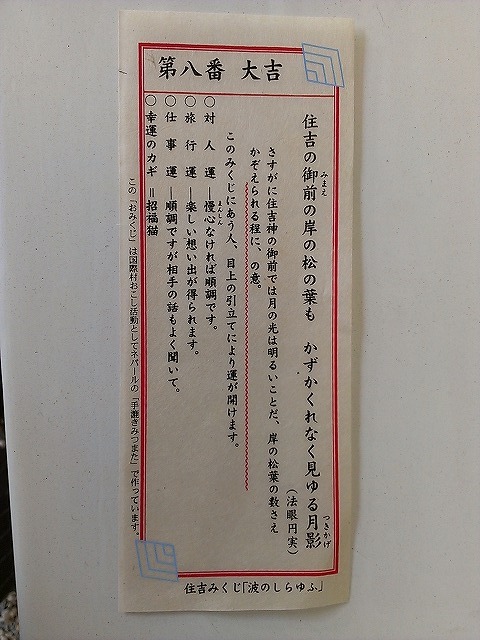 第八番 大吉
住吉の御前の岸の松の葉も かずかくれなく見ゆる月影
みまえ
つきかげ
(法眼円実)
さすがに住吉神の御前では月の光は明るいことだ、岸の松葉の数さえ
かぞえられる程に、の意。
このみくじにあう人、目上の引立てにより運が開けます。
○対人運―慢心なければ順調です。
まんしん
○旅行運―楽しい想い出が得られます。
○仕事運―順調ですが相手の話もよく聞いて。
○幸運のカギ=招福猫
この「おみくじ」は国際村おこし活動としてネパールの「手漉きみつまた」で作っています。
住吉みくじ「波のしらゆふ」